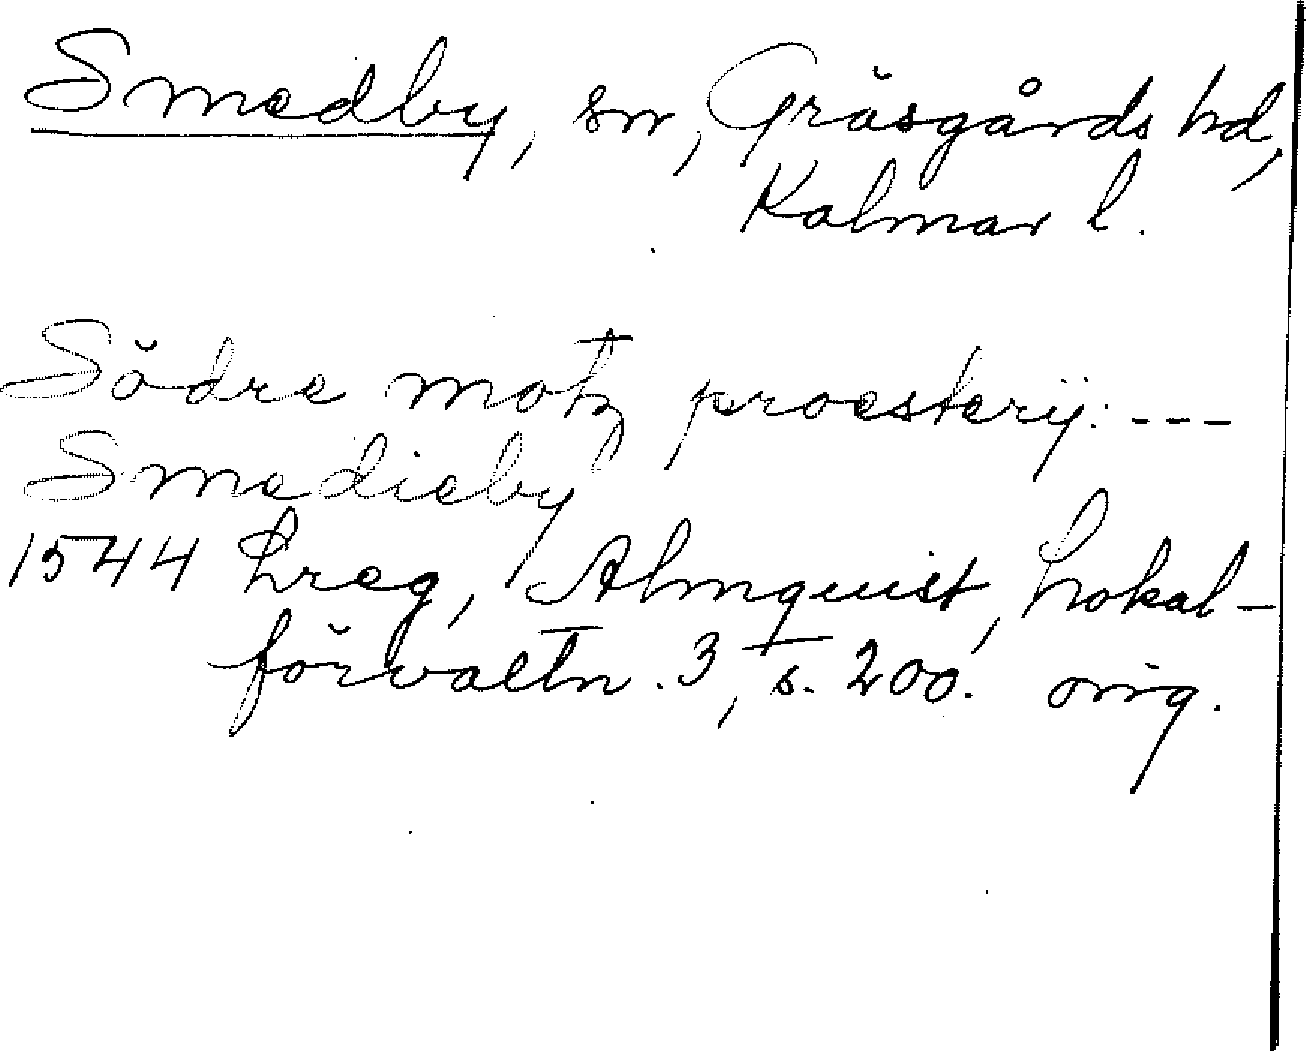 Smedby, sn, Gräsgårds hd,
Kalmar l.
Södre motz proestery: ---
Smedieby
1544 Lreg, Almquist, Lokal-
förvaltn. 3, s. 200. orig.